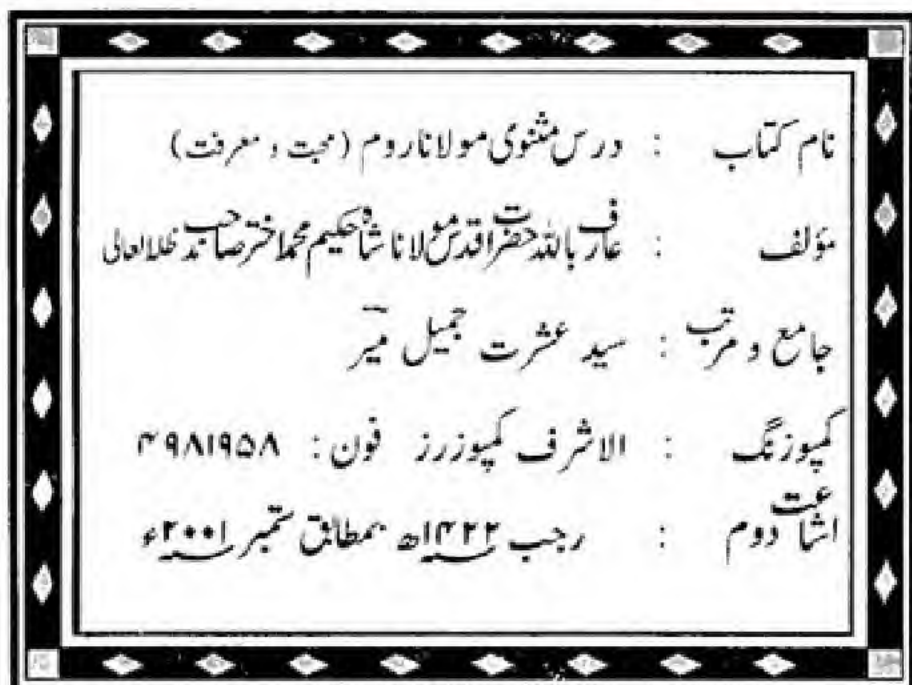 نام کتاب : درس مثنوی مولانا روم (محبت و معرفت)
مؤلف : عارف باللہ حضرت اقدس مولانا شاہ حکیم محمد اختر صاحب مدظلہ العالی
جامع و مرتب : سید عشرت جمیل میرؔ
کمپوزنگ : الاشرف کمپوزرز فون : ۴۹۸۱۹۵۸
اشاعت دوم : رجب ۱۴۲۲ھ بمطابق ستمبر ۲۰۰۱ء